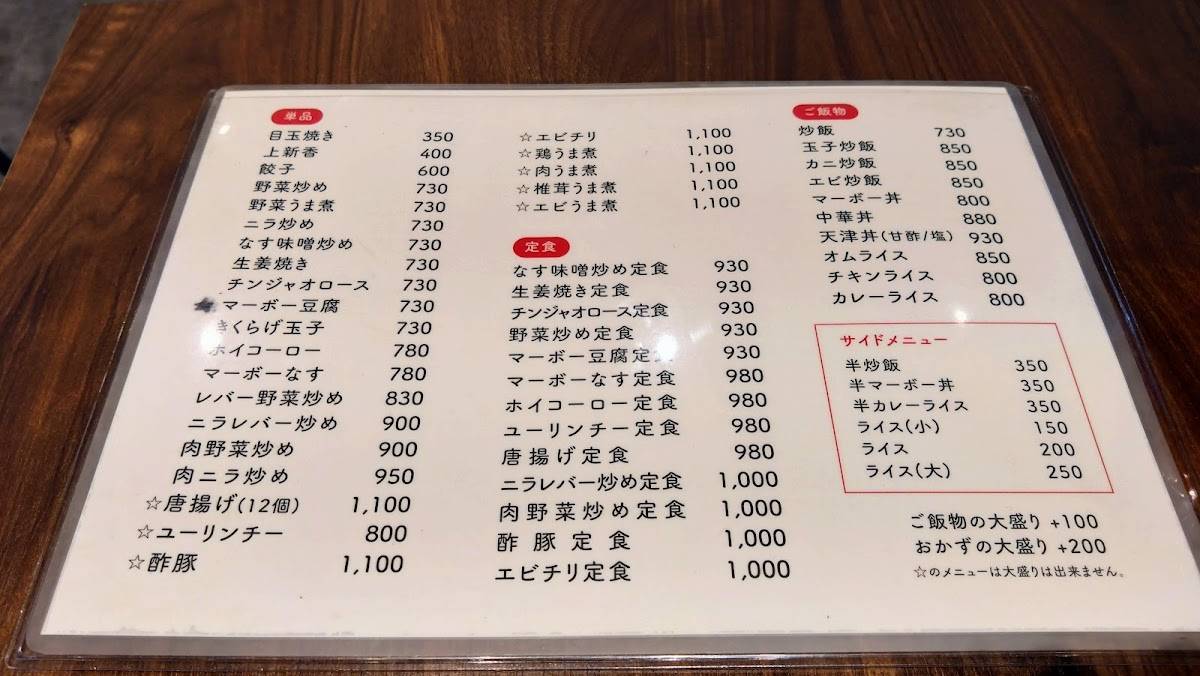 単品
目玉焼き 350
上新香 400
餃子 600
野菜炒め 730
野菜うま煮 730
ニラ炒め 730
なす味噌炒め 730
生姜焼き 730
チンジャオロース 730
マーボー豆腐 730
きくらげ玉子 730
ホイコーロー 780
マーボーなす 780
レバー野菜炒め 830
ニラレバー炒め 900
肉野菜炒め 900
肉ニラ炒め 950
☆唐揚げ(12個) 1,100
☆ユーリンチー 800
☆酢豚 1,100
☆エビチリ 1,100
☆鶏うま煮 1,100
☆肉うま煮 1,100
☆椎茸うま煮 1,100
☆エビうま煮 1,100
定食
なす味噌炒め定食 930
生姜焼き定食 930
チンジャオロース定食 930
野菜炒め定食 930
マーボー豆腐定食 930
マーボーなす定食 980
ホイコーロー定食 980
ユーリンチー定食 980
唐揚げ定食 980
ニラレバー炒め定食 1,000
肉野菜炒め定食 1,000
酢豚定食 1,000
エビチリ定食 1,000
ご飯物
炒飯 730
玉子炒飯 850
カニ炒飯 850
エビ炒飯 850
マーボー丼 800
中華丼 880
天津丼(甘酢/塩) 930
オムライス 850
チキンライス 800
カレーライス 800
サイドメニュー
半炒飯 350
半マーボー丼 350
半カレーライス 350
ライス(小) 150
ライス 200
ライス(大) 250
ご飯物の大盛り +100
おかずの大盛り +200
☆のメニューは大盛りは出来ません。